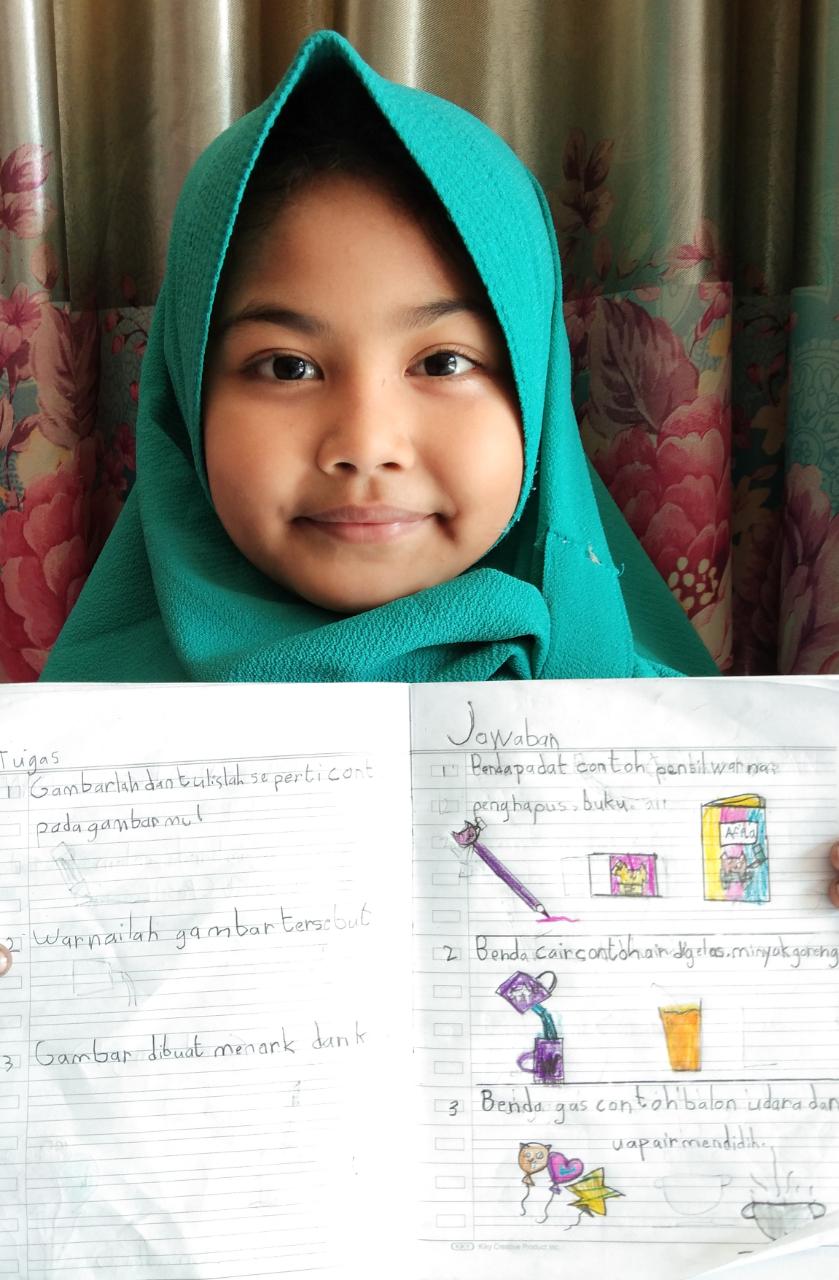 Tugas
1 Gambarlah dan tulislah seperti cont
pada gambar mu!
2 Warnailah gambar tersebut
3 Gambar dibuat menark dan k
Jawaban
1 Benda padat contoh pensil warna
2 penghapus, buku.
2 Benda cair contoh air digelas, minyak goreng
3 Benda gas contoh balon udara dan
uap air mendidih.
KIKY Kiky Creative Product Inc.